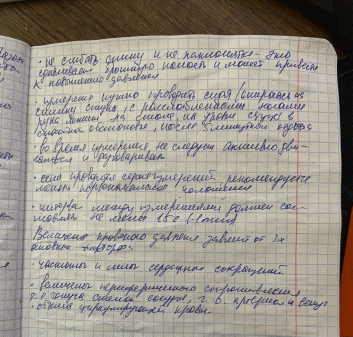 • не сжимать спину и не напрягаться - это
сдавливает брюшную полость и может привести
к повышению давления
• измерение нужно проводить сидя (опираясь на
спинку стула, с расслабленными ногами
рука лежит на столе, на уровне сердца) в
спокойной обстановке, после 5 минутного отдыха
• во время измерения не следует активно дви-
гаться и разговаривать
• если проводится серия измерений, рекомендуется
менять первоначальное положение
• интервал между измерениями должен сос-
тавлять не менее 15 с (-1 мин)
Величина кровяного давления зависит от 3х
основных факторов:
• частоты и силы сердечных сокращений
• величины периферического сопротивления
т.е тонуса стенок сосудов, г. о. артериол и вен
• объема циркулирующей крови